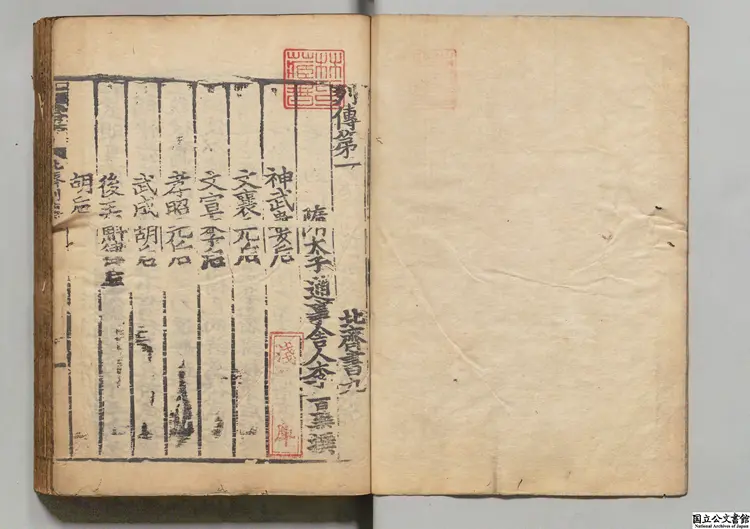 列傳第一
北齊書九
隋太子通事舍人李百藥撰
神武婁后
文襄元后
文宣李后
孝昭元后
武成胡后
後主斛律后
胡后
林氏藏書
淺 庫
国立公文書館
National Archives of Japan